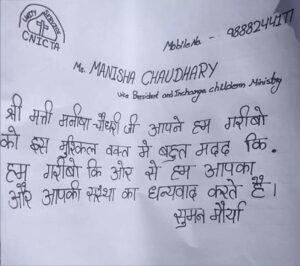 UNITY
CNICTA
Mobile No. - 9888244177
Ms. MANISHA CHAUDHARY
vice President and Incharge childern Ministry
श्री मती मनीषा चौधरी जी आपने हम गरीबो
को इस मुश्किल वक्त मे बहुत मदद कि.
हम गरीबो कि ओर से हम आपका
और आपकी संस्था का धन्यवाद करते है।
सुमन मौर्या